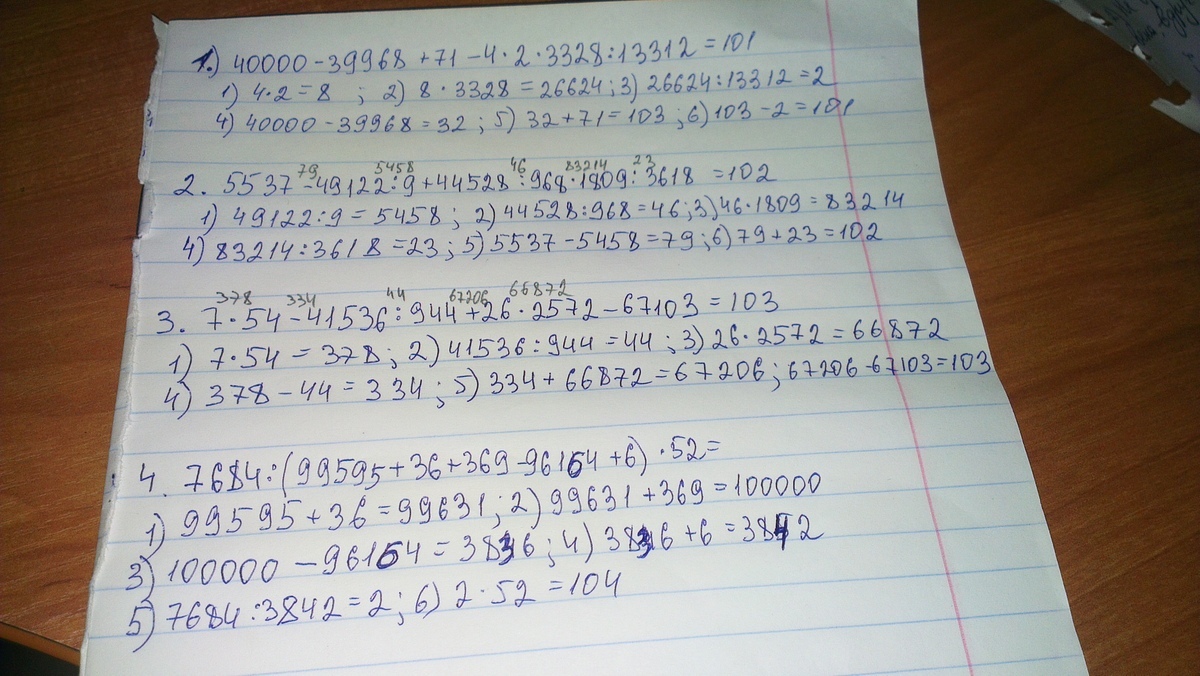 1.) 40000 - 39968 + 71 - 4 · 2 · 3328 : 13312 = 101
1) 4 · 2 = 8 ; 2) 8 · 3328 = 26624 ; 3) 26624 : 13312 = 2
4) 40000 - 39968 = 32 ; 5) 32 + 71 = 103 ; 6) 103 - 2 = 101
79 5458 46 83214 23
2. 5537 - 49122 : 9 + 44528 : 968 · 1809 : 3618 = 102
1) 49122 : 9 = 5458 ; 2) 44528 : 968 = 46 ; 3) 46 · 1809 = 83214
4) 83214 : 3618 = 23 ; 5) 5537 - 5458 = 79 ; 6) 79 + 23 = 102
378 334 44 67206 66872
3. 7 · 54 - 41536 : 944 + 26 · 2572 - 67103 = 103
1) 7 · 54 = 378 ; 2) 41536 : 944 = 44 ; 3) 26 · 2572 = 66872
4) 378 - 44 = 334 ; 5) 334 + 66872 = 67206 ; 67206 - 67103 = 103
4. 7684 : (99595 + 36 + 369 - 96164 + 6) · 52 =
1) 99595 + 36 = 99631 ; 2) 99631 + 369 = 100000
3) 100000 - 96164 = 3836 ; 4) 3836 + 6 = 3842
5) 7684 : 3842 = 2 ; 6) 2 · 52 = 104